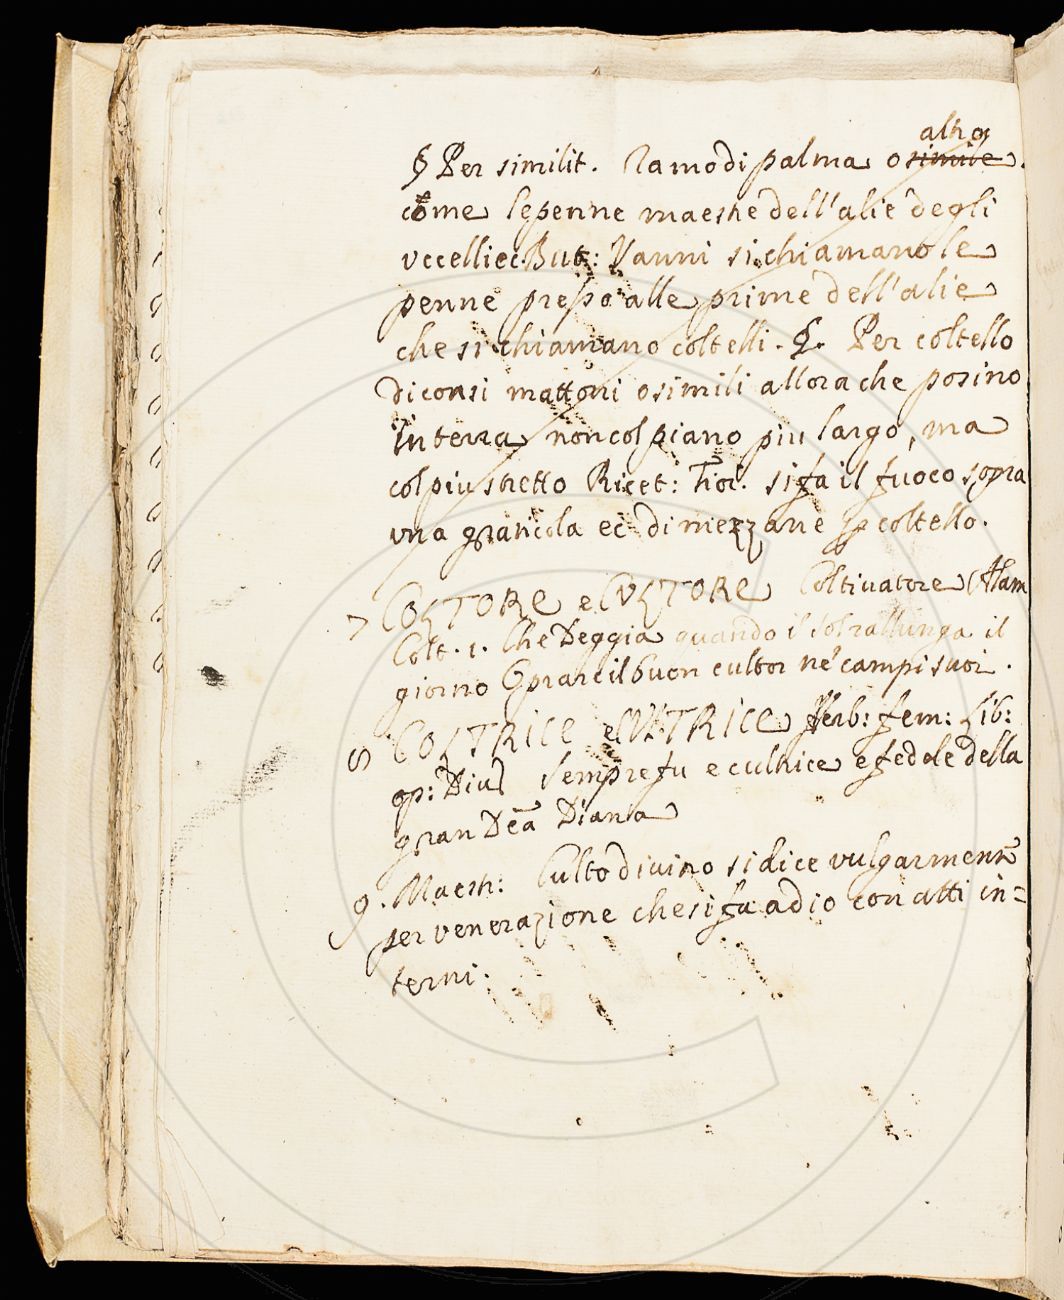 altro
§ Per similit. Ramo di palma o simile.
come le penne maestre dell'alie degli
uccelli ec. But: Vanni si chiamano le
penne presso alle prime dell'alie
che si chiamano coltelli. §. Per coltello
diconsi mattoni o simili allora che posino
in terra non col piano piu largo, ma
col piu stretto Ricet: Fior. si fa il fuoco sopra
una graticola ec di mezzane per coltello.
7 COLTORE e CULTORE Coltivatore Alam
Colt. 1. Che Deggia quando il sol rallunga il
giorno Oprare il buon cultor ne' campi suoi.
8 COLTRICE e CULTRICE Verb: fem: Lib:
op: Div Sempre fu e cultrice e fedele della
gran Dea Diana
9. Maestr: Culto divino si dice vulgarmente
per venerazione che si fa a dio con atti in=
terni.